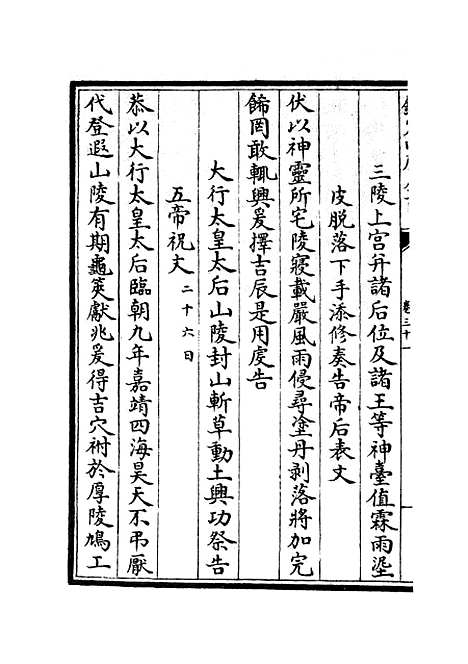 三陵上宮并諸后位及諸王等神臺值霖雨埿
皮脫落下手添修奏告帝后表文
伏以神靈所宅陵寢載嚴風雨侵尋塗丹剥落將加完
飾罔敢輒興爰擇吉辰是用虔告
大行太皇太后山陵封山斬草動土興功祭告
五帝祝文二十六日
恭以大行太皇太后臨朝九年嘉靖四海昊天不弔厭
代登遐山陵有期龜筴獻兆爰得吉穴祔於厚陵鳩工
卷三十一